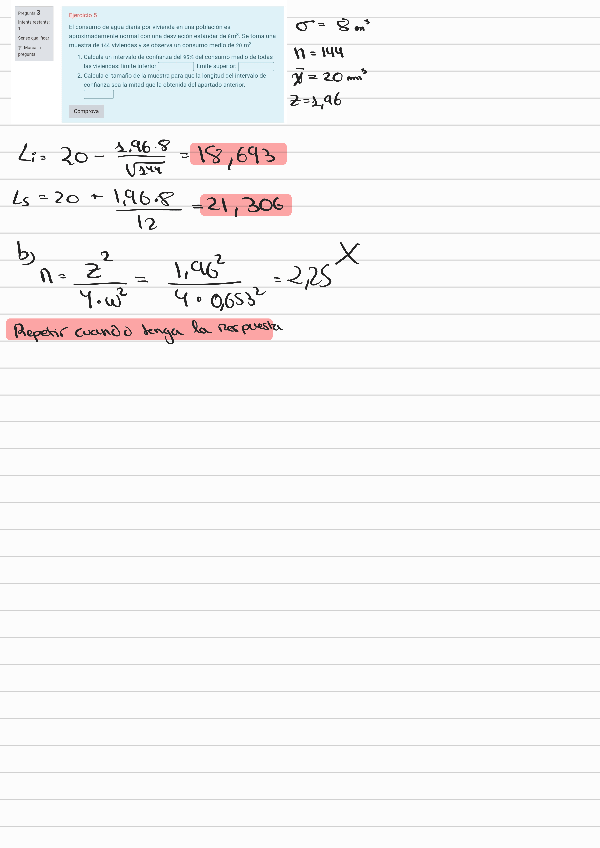 Pregunta 3
Intentos restantes:
1
Sense qualificar
Marca la
pregunta
Ejercicio 5
El consumo de agua diaria por vivienda en una población es
aproximadamente normal con una desviación estándar de 8 m³. Se toma una
muestra de 144 viviendas y se observa un consumo medio de 20 m³
1. Calcula un intervalo de confianza del 95% del consumo medio de todas
las viviendas: límite inferior límite superior
2. Calcula el tamaño de la muestra para que la longitud del intervalo de
confianza sea la mitad que la obtenida del apartado anterior.
Comprova
σ = 8 m³
n = 144
x̄ = 20 mm³
z = 1,96
Li = 20 - 1,96·8 / √144 = 18,693
Ls = 20 + 1,96·8 / 12 = 21,306
b)
n = z² / 4·w² = 1,96² / 4·0,653² = 2,25 X
Repetir cuando tenga la respuesta